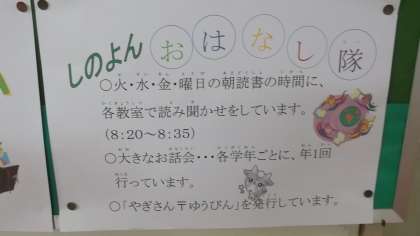 しのよん おはなし隊
○火・水・金・曜日の朝読書の時間に、
各教室で読み聞かせをしています。
(8:20～8:35)
○大きなお話会・・・各学年ごとに、年1回
行っています。
○「やぎさん〒ゆうびん」を発行しています。